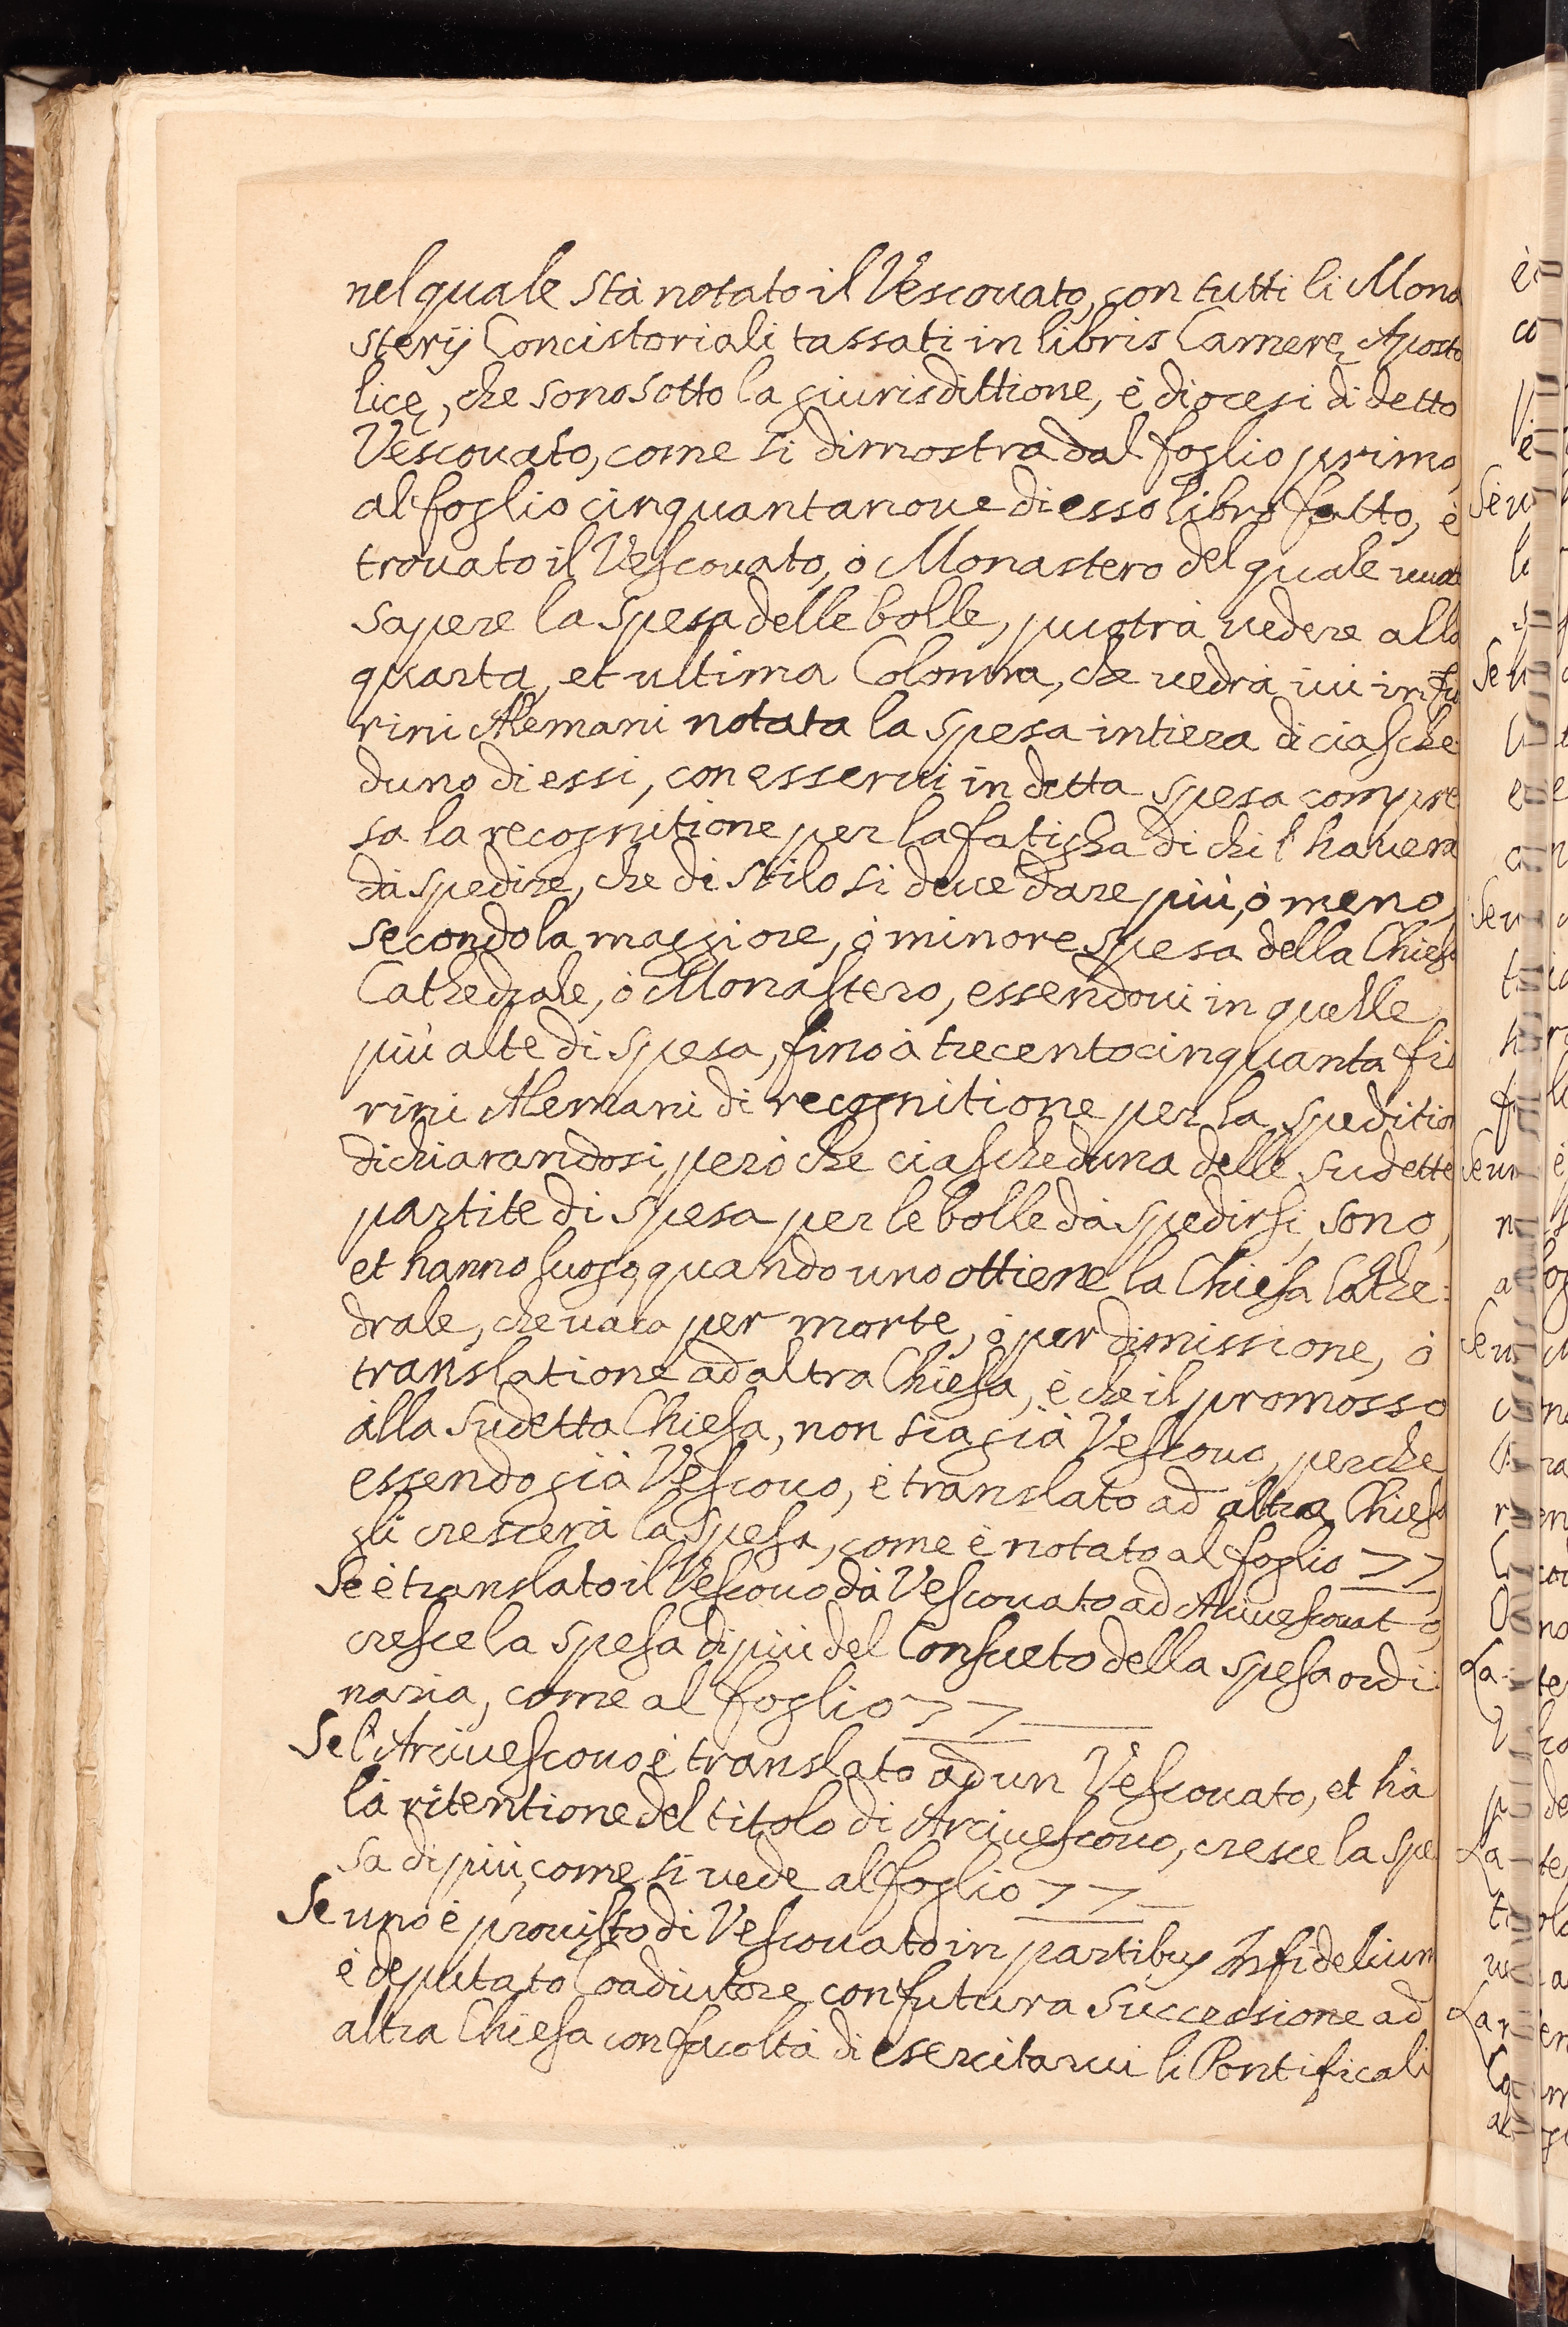 nel quale stà notato il Vescouato, con tutti li Mona
sterij Concistoriali tassati in libris Camerę Aposto
licę, che sono sotto la giurisdittione, è diocesi di detto
Vescouato, come si dimostra dal foglio primo,
al foglio cinquantanoue di esso libro fatto, è
trouato il Vescouato, ò Monastero del quale
sapere la spesa delle bolle, puotrà vedere alla
quarta, et ultima Colonna, che vedrà iui in fio
rini Alemani notata la spesa intiera di ciasche
duno di essi, con esserui in detta spesa compre
sa la recognitione per la fatigha di chi l'hauerà
dà spedire, che di stilo si deue dare più, ò meno,
secondo la maggiore, ò minore spesa della Chiesa
Cathedrale, ò Monastero, essendoui in quelle
più alte di spesa, fino à trecentocinquanta fio
rini Alemani di recognitione per la speditio
dichiarandosi però che ciascheduna delle sudette
partite di spesa per le bolle dà spedirsi, sono,
et hanno luogo, quando uno ottiene la Chiesa Cathe:
drale, che uaca per morte, ò per dimissione, ò
translatione ad altra Chiesa, è che il promosso
alla sudetta Chiesa, non sia già Vescouo, perche
essendo già Vescouo, è translato ad altra Chiesa
gli crescerà la spesa, come è notato al foglio 77,
Se è translato il Vescouo dà Vescouato ad Arciuescouato,
cresce la spesa di più del Consueto della spesa ordi:
naria, come al foglio 77
Se l'Arciuescouo è translato ad un Vescouato, et hà
là ritentione del titolo di Arciuescouo, cresce la spe
sa di più, come si vede al foglio 77
Se uno è prouisto di Vescouato in partibus Infidelium
è deputato Coadiutore con futura successione ad
altra Chiesa con facoltà di esercitarui li Pontificali